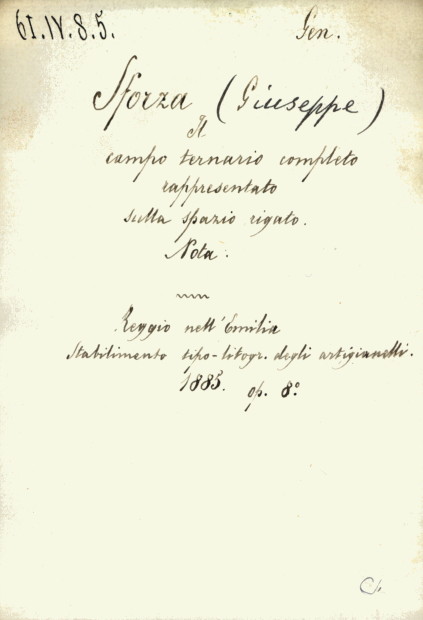 61.IV.8.5. Gen.
Sforza (Giuseppe)
Il
campo ternario completo
rappresentato
sullo spazio rigato.
Nota.
Reggio nell'Emilia
Stabilimento tipo-litogr. degli artigianelli.
1885. op. 8º